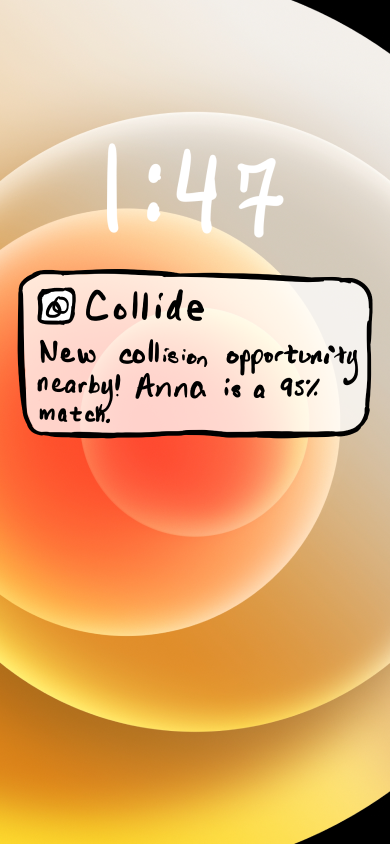 1:47
Collide
New collision opportunity
nearby! Anna is a 95%
match.